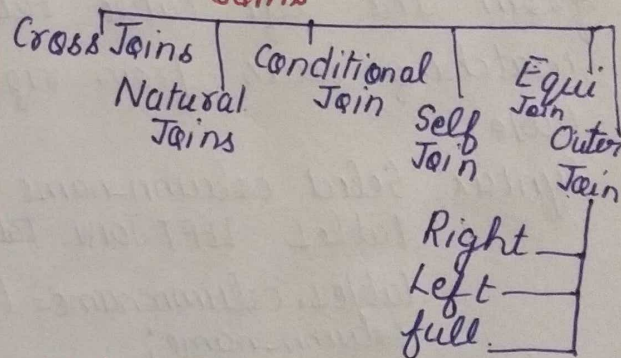 Cross Joins
Natural
Joins
Conditional
Join
Self
Join
Equi
Join
Outer
Join
Right
Left
full